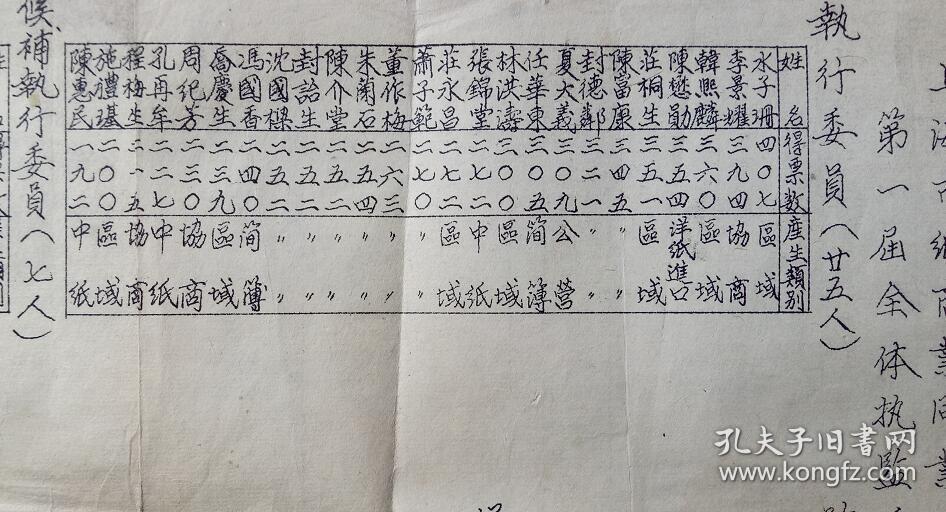 上海市紙商業同業
第一屆全体执監
執行委員(廿五人)
姓名 得票數 產生類別
水子珊 四〇七 區域
李景耀 三九四 協商
韓熙麟 三六〇 區域
陳懋勛 三五四 洋紙進口
莊桐生 三五一 區域
陳富康 三四五 〃 〃
封德鄰 三二一 〃 〃
夏大義 三〇九 公營
任華東 三〇五 簡簿
林洪濤 三〇〇 區域
張錦堂 二八〇 中紙
莊永昌 二七〇 區域
蕭子範 二七〇 〃 〃
董作梅 二六三 〃 〃
朱蘭石 二五四 〃 〃
陳介堂 二五二 〃 〃
封詒生 二五二 〃 〃
沈國樑 二五二 〃 〃
馮國香 二四〇 簡簿
喬慶生 二三九 區域
周紀芳 二三〇 協商
孔再牟 二二七 中紙
程梅生 二一五 協商
施禮堪 二〇〇 區域
陳惠民 一九二 中紙
候補執行委員(七人)
孔夫子旧書网
www.kongfz.com